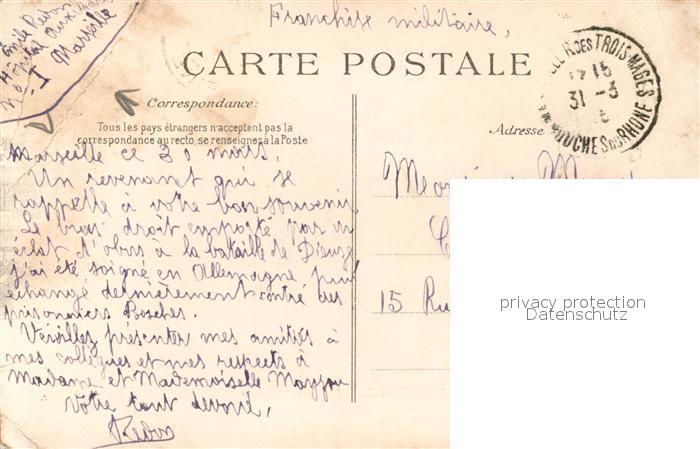 Franchise militaire,
Emile Rebon
Hôpital Auxiliaire
No I Marseille
CARTE POSTALE
RUE DES TROIS MAGES
15
31 -3
BOUCHES DU RHONE
Correspondance:
Tous les pays étrangers n'acceptent pas la
correspondance au recto, se renseigner à la Poste
Adresse
Marseille ce 30 mars.
Un revenant qui se
rappelle à votre bon souvenir.
Le bras droit emporté par un
éclat d'obus à la bataille de Dieuze
j'ai été soigné en Allemagne puis
échangé dernièrement contre des
prisonniers Boches.
Veuillez présenter mes amitiés à
mes collègues et mes respects à
Madame et Mademoiselle
Votre tout dévoué,
Monsieur
15 Ru
privacy protection
Datenschutz